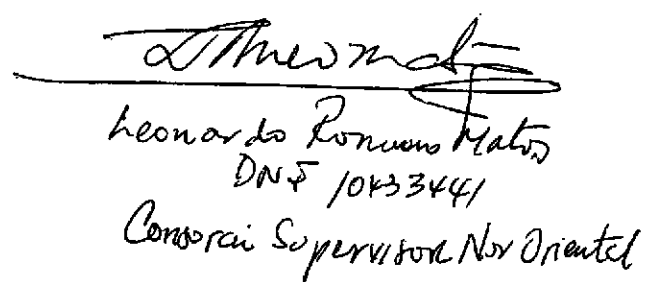 Leonardo Romano Matos
DNI 10433441
Consorcio Supervisor Nor Oriental